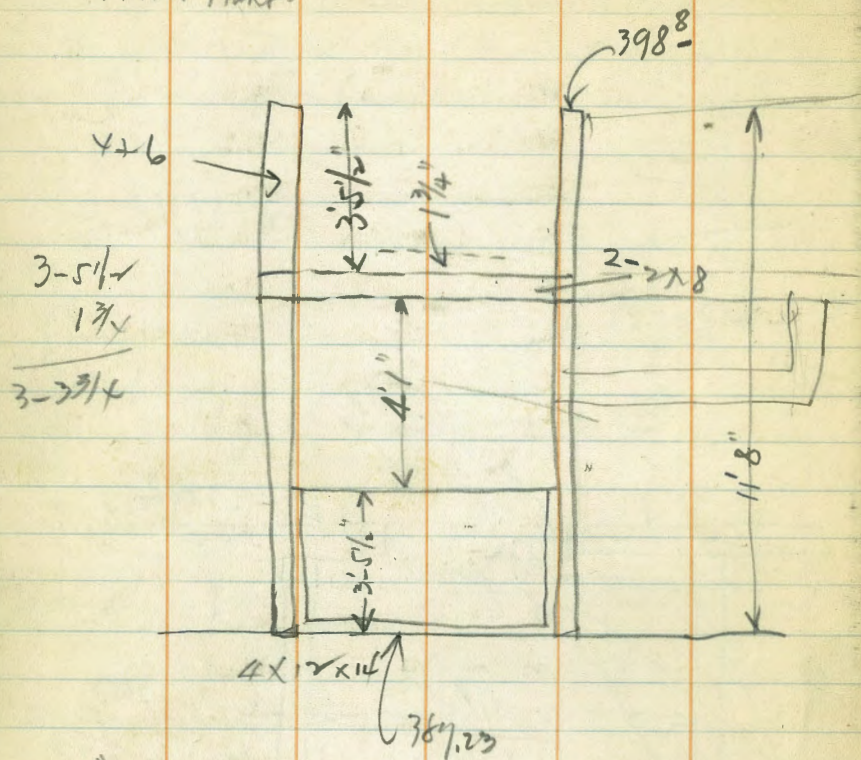 398 8
4 x 6
3'5 1/2"
1 3/4"
2-2x8
3-5 1/2
1 3/4
3-3 3/4
4'1"
11'8"
3'-5 1/2"
4 x 12 x 14
387.23